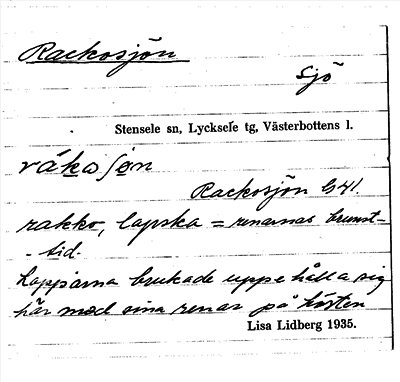 Rackosjön
Sjö
Stensele sn, Lycksele tg, Västerbottens l.
råkasjøn
Rackosjön G41.
rakko, lapska = renarnas brunst-
- tid.
Lapparna brukade uppehålla sig
här med sina renar på hösten
Lisa Lidberg 1935.